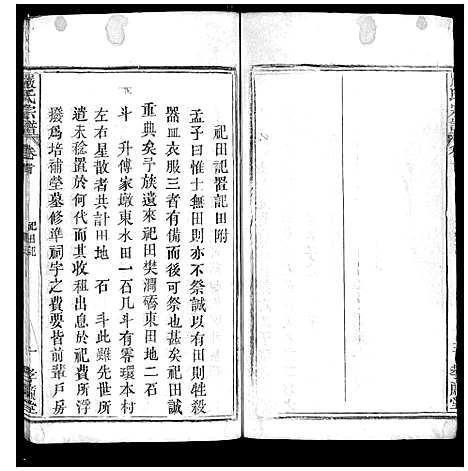 祀田記置祀田附
孟子曰惟士無田則亦不祭誠以有田則牲殺
器皿衣服三者有備而後可祭也甚矣祀田誠
重典矣予族遺來祀田樊澗橋東田地二石
斗 升傅家墩東水田一石几斗有零環本村
左右星散者共計田地 石 斗此雖先世所
遺未述置於何代而其收租出息於祀費所浮
撥為培補塋墓修準祠宇之費要皆前輩戶房
嚴氏宗譜 卷首 祀田記 一